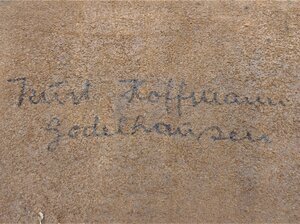 Kurt Hoffmann
Godelhausen